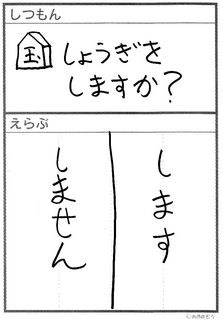 しつもん
玉
しょうぎを
しますか?
えらぶ
します
しません